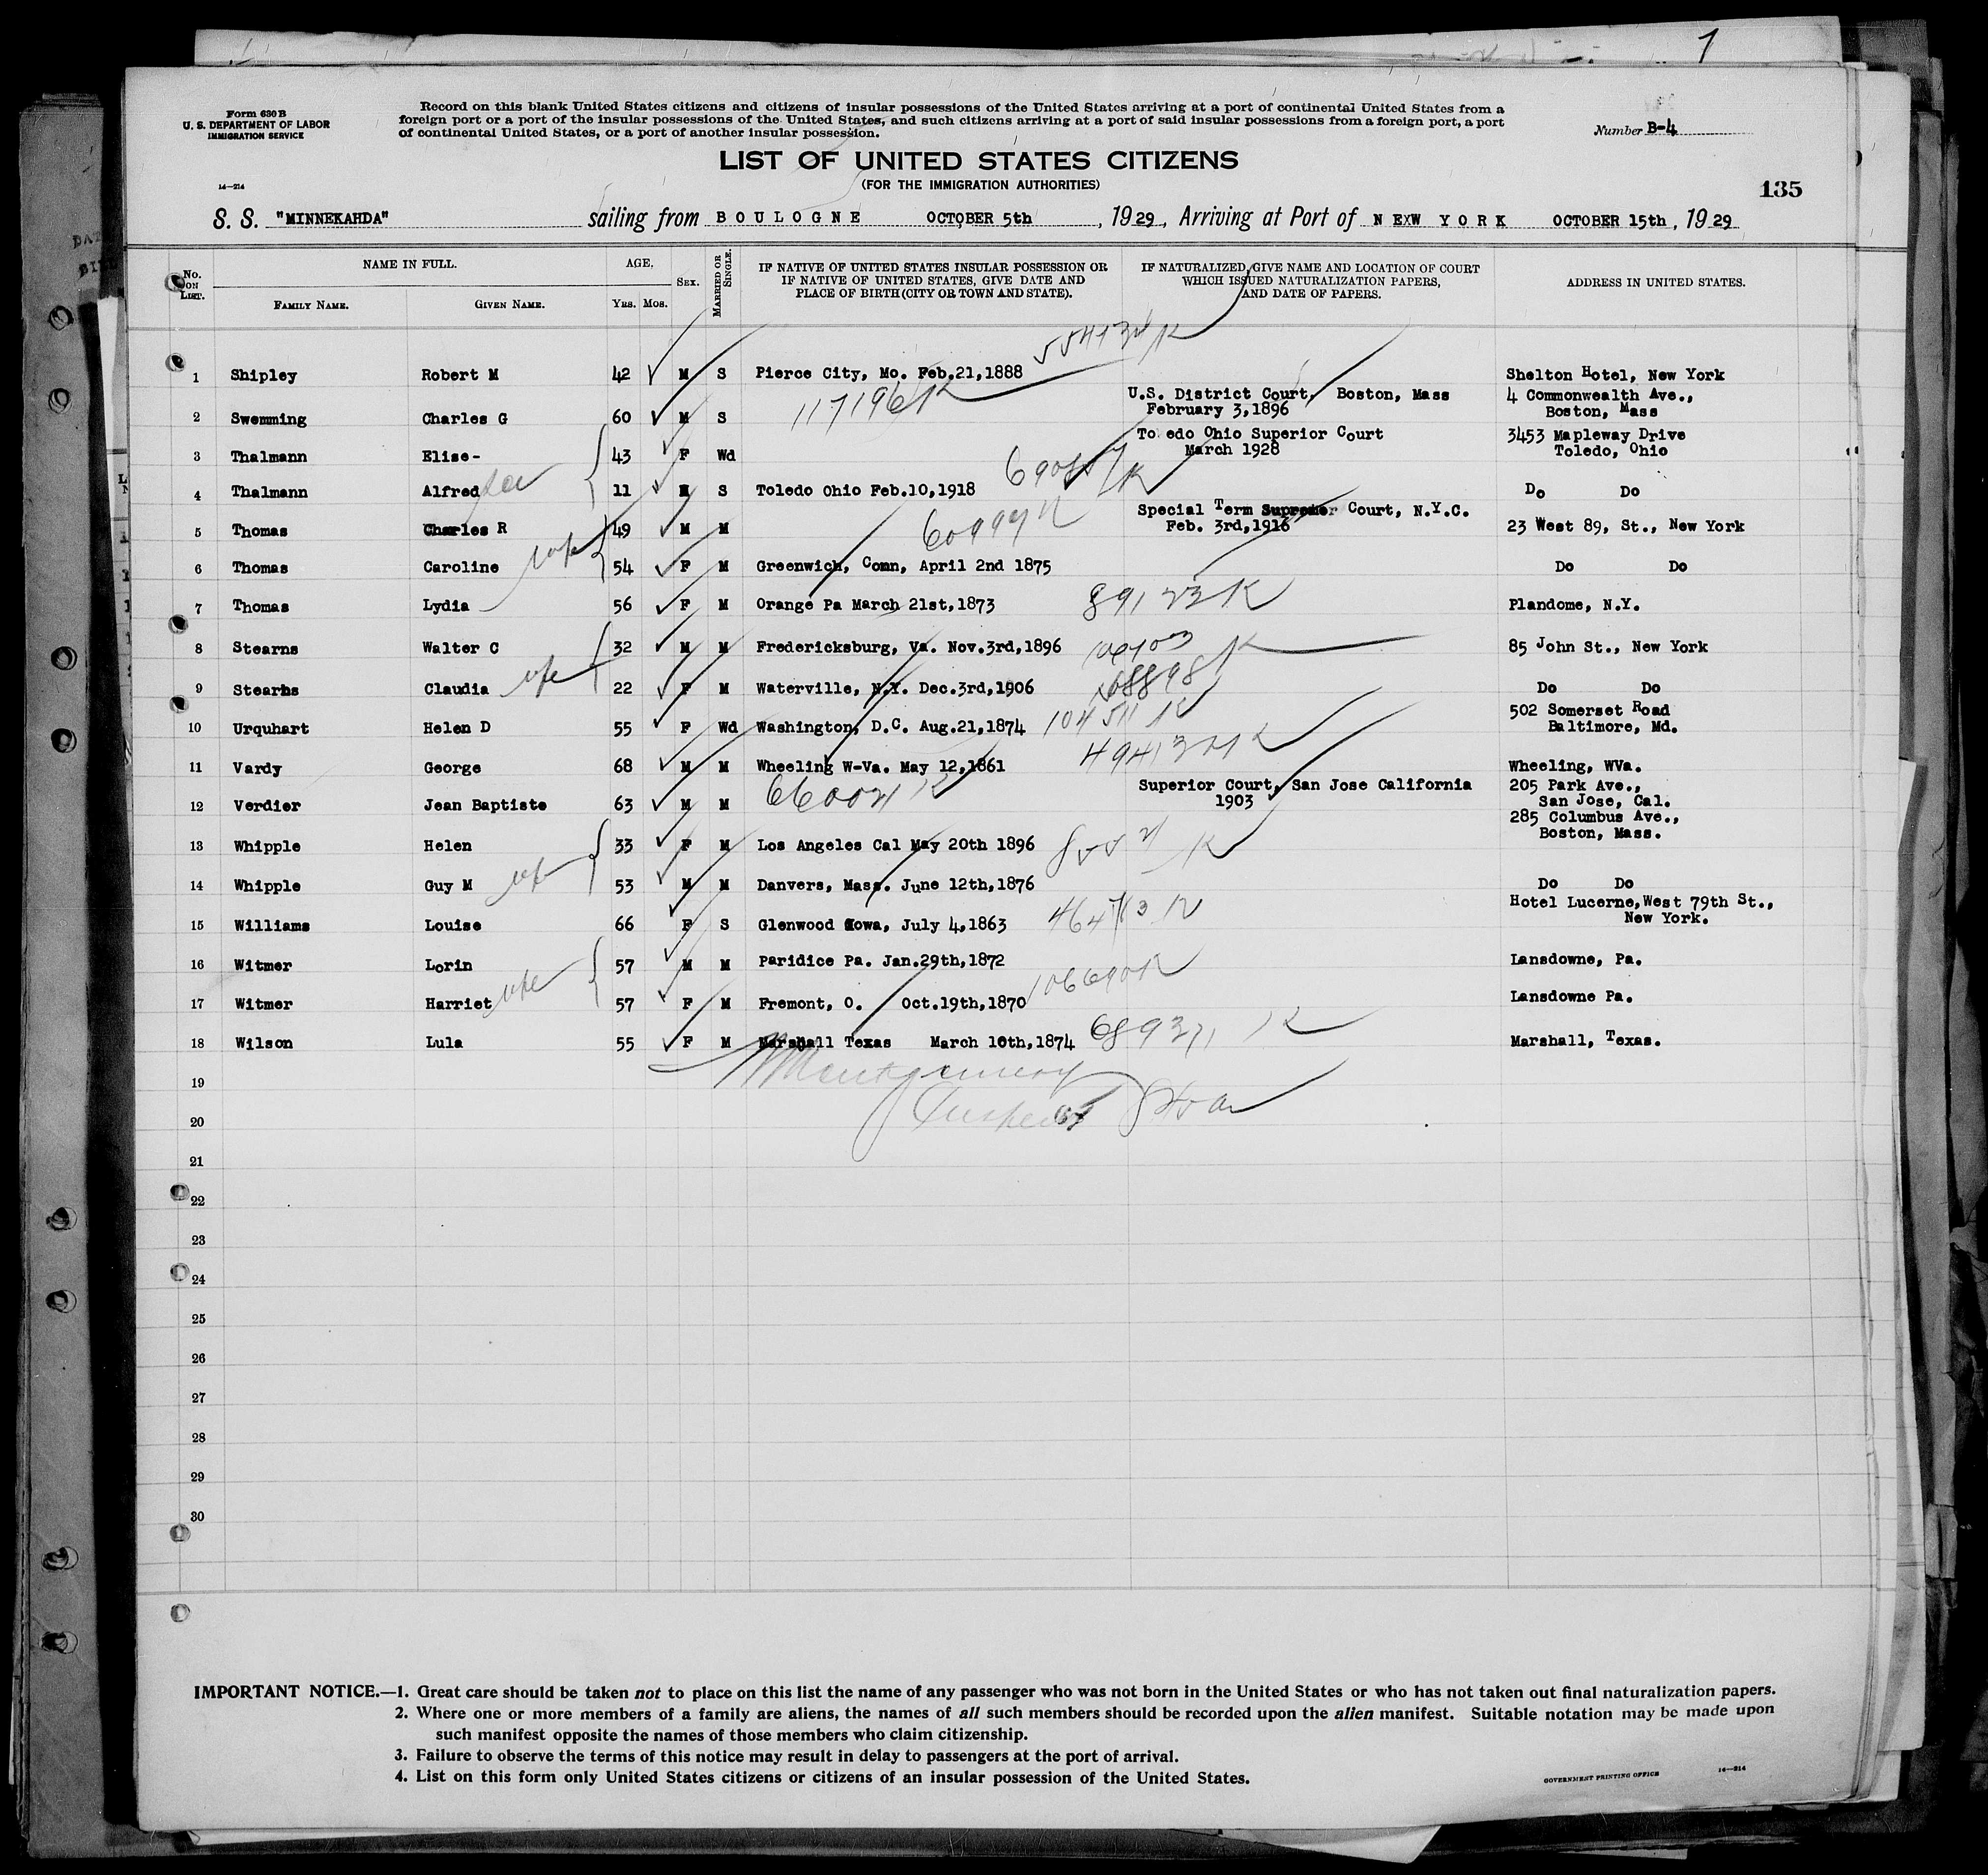 1
Form 630 B
U. S. DEPARTMENT OF LABOR
IMMIGRATION SERVICE
Record on this blank United States citizens and citizens of insular possessions of the United States arriving at a port of continental United States from a
foreign port or a port of the insular possessions of the United States, and such citizens arriving at a port of said insular possessions from a foreign port, a port
of continental United States, or a port of another insular possession.
Number B-4
LIST OF UNITED STATES CITIZENS
(FOR THE IMMIGRATION AUTHORITIES)
14—214
135
S. S. "MINNEKAHDA" sailing from BOULOGNE OCTOBER 5th, 1929, Arriving at Port of NEW YORK OCTOBER 15th, 1929
No. ON LIST. NAME IN FULL. AGE. SEX. MARRIED OR SINGLE. IF NATIVE OF UNITED STATES INSULAR POSSESSION OR IF NATIVE OF UNITED STATES, GIVE DATE AND PLACE OF BIRTH (CITY OR TOWN AND STATE). IF NATURALIZED, GIVE NAME AND LOCATION OF COURT WHICH ISSUED NATURALIZATION PAPERS, AND DATE OF PAPERS. ADDRESS IN UNITED STATES.
FAMILY NAME. GIVEN NAME. YRS. MOS.
1 Shipley Robert M 42 M S Pierce City, Mo. Feb.21,1888 Shelton Hotel, New York
117196 K
U.S. District Court, Boston, Mass 4 Commonwealth Ave.,
2 Swemming Charles G 60 M S February 3,1896 Boston, Mass
Toledo Ohio Superior Court 3453 Mapleway Drive
3 Thalmann Elise- 43 F Wd March 1928 Toledo, Ohio
4 Thalmann Alfred 11 M S Toledo Ohio Feb.10,1918 Do Do
Special Term Supreme Court, N.Y.C.
5 Thomas Charles R 49 M M Feb. 3rd,1916 23 West 89, St., New York
6 Thomas Caroline wife 54 F M Greenwich, Conn, April 2nd 1875 Do Do
7 Thomas Lydia 56 F M Orange Pa March 21st,1873 89123 K Plandome, N.Y.
8 Stearns Walter C 32 M M Fredericksburg, Va. Nov.3rd,1896 85 John St., New York
9 Stearns Claudia wife 22 F M Waterville, N.Y. Dec.3rd,1906 68898 K Do Do
502 Somerset Road
10 Urquhart Helen D 55 F Wd Washington, D.C. Aug.21,1874 104511 K Baltimore, Md.
11 Vardy George 68 M M Wheeling W-Va. May 12,1861 Wheeling, WVa.
Superior Court, San Jose California 205 Park Ave.,
12 Verdier Jean Baptiste 63 M M 1903 San Jose, Cal.
285 Columbus Ave.,
Boston, Mass.
13 Whipple Helen 33 F M Los Angeles Cal May 20th 1896
14 Whipple Guy M 53 M M Danvers, Mass. June 12th,1876 Do Do
Hotel Lucerne, West 79th St.,
15 Williams Louise 66 F S Glenwood Iowa, July 4,1863 New York.
16 Witmer Lorin 57 M M Paridice Pa. Jan.29th,1872 Lansdowne, Pa.
106690 K
17 Witmer Harriet wife 57 F M Fremont, O. Oct.19th,1870 Lansdowne Pa.
18 Wilson Lula 55 F M Marshall Texas March 10th,1874 Marshall, Texas.
19 Montgomery
20
21
22
23
24
25
26
27
28
29
30
IMPORTANT NOTICE.—1. Great care should be taken not to place on this list the name of any passenger who was not born in the United States or who has not taken out final naturalization papers.
2. Where one or more members of a family are aliens, the names of all such members should be recorded upon the alien manifest. Suitable notation may be made upon
such manifest opposite the names of those members who claim citizenship.
3. Failure to observe the terms of this notice may result in delay to passengers at the port of arrival.
4. List on this form only United States citizens or citizens of an insular possession of the United States.
GOVERNMENT PRINTING OFFICE 14—214